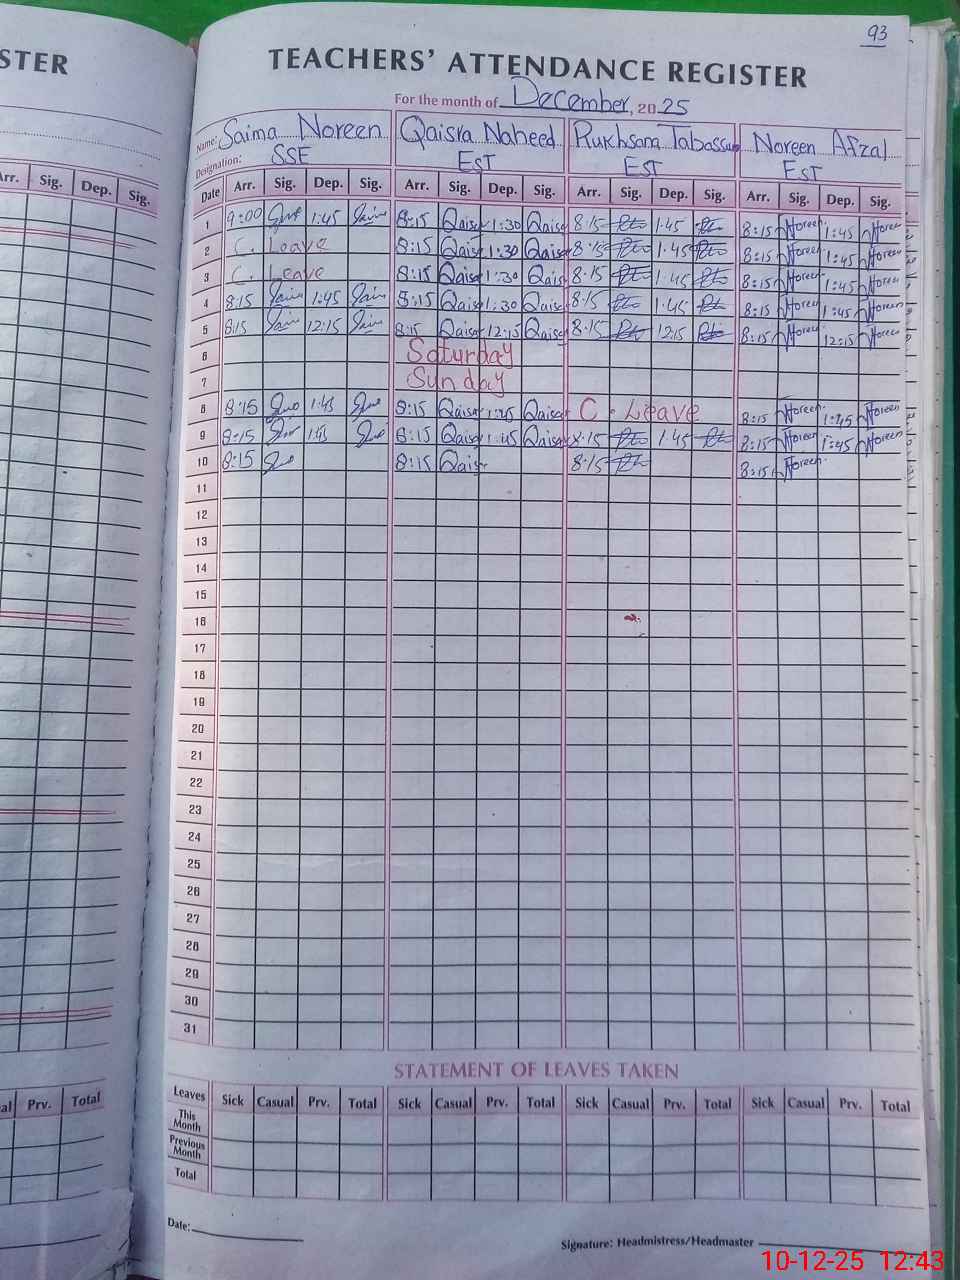 93
STER
TEACHERS' ATTENDANCE REGISTER
For the month of December, 2025
Name: Saima Noreen Qaisra Naheed Rukhsana Tabassum Noreen Afzal
Designation: SSE EST EST EST
Arr. Sig. Dep. Sig.
Date Arr. Sig. Dep. Sig. Arr. Sig. Dep. Sig. Arr. Sig. Dep. Sig. Arr. Sig. Dep. Sig.
1 9:00 1:45 8:15 Qaisra 1:30 Qaisra 8:15 1:45 8:15 Noreen 1:45 Noreen
2 C. Leave 8:15 Qaisra 1:30 Qaisra 8:15 1:45 8:15 Noreen 1:45 Noreen
3 C. Leave 8:15 Qaisra 1:30 Qaisra 8:15 1:45 8:15 Noreen 1:45 Noreen
4 8:15 1:45 8:15 Qaisra 1:30 Qaisra 8:15 1:45 8:15 Noreen 1:45 Noreen
5 8:15 12:15 8:15 Qaisra 12:15 Qaisra 8:15 12:15 8:15 Noreen 12:15 Noreen
6 Saturday
7 Sunday
8 8:15 1:45 8:15 Qaisra 1:45 Qaisra C. Leave 8:15 Noreen 1:45 Noreen
9 8:15 1:45 8:15 Qaisra 1:45 Qaisra 8:15 1:45 8:15 Noreen 1:45 Noreen
10 8:15 8:15 Qaisra 8:15 8:15 Noreen
11
12
13
14
15
16
17
18
19
20
21
22
23
24
25
26
27
28
29
30
31
STATEMENT OF LEAVES TAKEN
Prv. Total
Leaves Sick Casual Prv. Total Sick Casual Prv. Total Sick Casual Prv. Total Sick Casual Prv. Total
This Month
Previous Month
Total
Date:
Signature: Headmistress/Headmaster
10-12-25 12:43